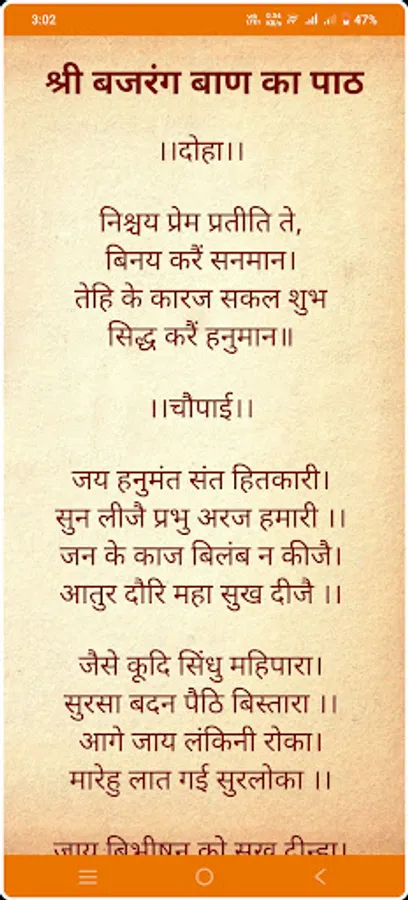 3:02
47%
श्री बजरंग बाण का पाठ
।।दोहा।।
निश्चय प्रेम प्रतीति ते,
बिनय करैं सनमान।
तेहि के कारज सकल शुभ
सिद्ध करैं हनुमान॥
।।चौपाई।।
जय हनुमंत संत हितकारी।
सुन लीजै प्रभु अरज हमारी ।।
जन के काज बिलंब न कीजै।
आतुर दौरि महा सुख दीजै ।।
जैसे कूदि सिंधु महिपारा।
सुरसा बदन पैठि बिस्तारा ।।
आगे जाय लंकिनी रोका।
मारेहु लात गई सुरलोका ।।
जाय बिभीषन को सुख दीन्हा।